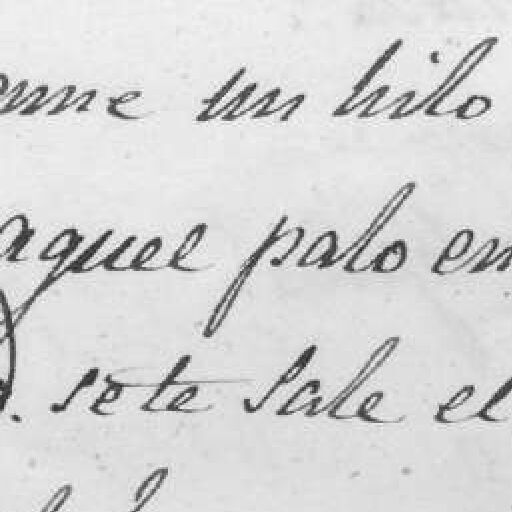 un hilo
aquel palo en
. sete sale el